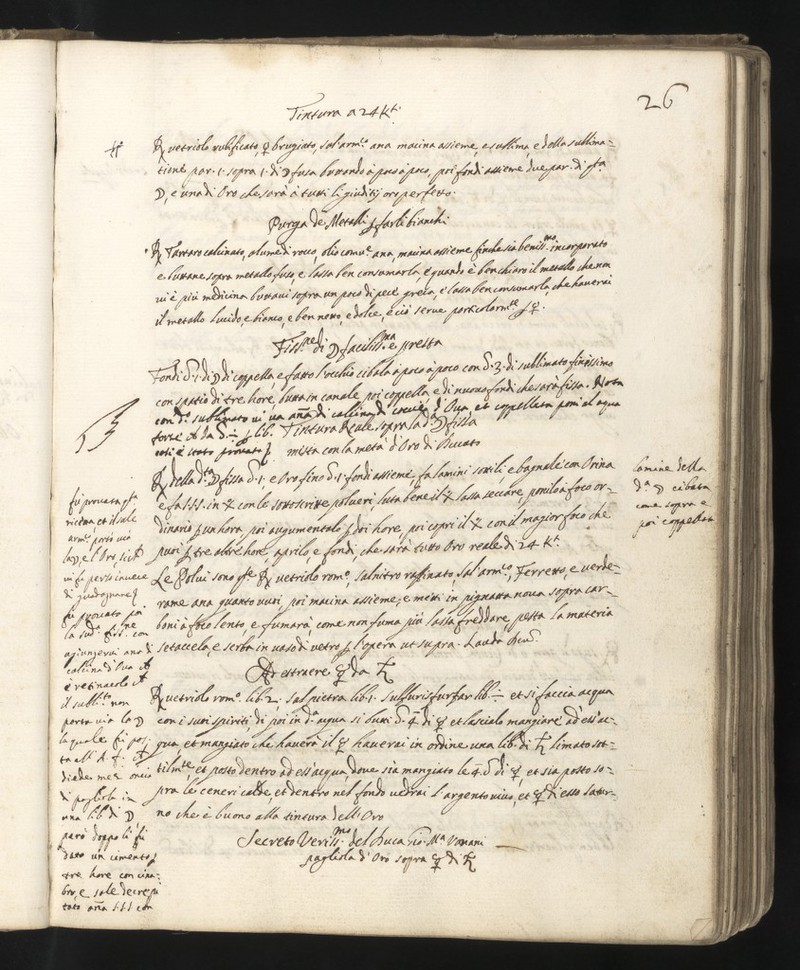 26
Tintura a 24 Kti
℞ vetriolo rubificato, ♀ brugiato, sal armo. ana macina assieme e sullima, e della sullima=
tione par. 1. sopra 1. di ☽ fusa buttando à poco à poco, poi fondi assieme due par. di qta
☽, e una di Oro che sarà à tutti li giuditij oro perfetto.
Purga de Metalli ꝑ farli bianchi
℞ Tartaro calcinato, alume di rocco, olio come. ana, macina assieme finche sia benissmo. incorporato
e buttane sopra metallo fuso, e lassa ben consumarla, e quando è ben chiaro il metallo che non
vi è più medicina buttavi sopra un poco di pece greca, e lassa ben consumarla, che haverai
il metallo lucido, e bianco, e ben netto, e dolce, e ciò serve particolarmte ꝑ ♀.
Fissne di ☽ facilissma e presta
Fondi 1. di ☽ di coppella, e fatto l'occhio cibala a poco à poco con 3. di sublimato finissimo
con spatio di tre hore, butta in canale poi coppella, e di nuovo fondi che sarà fissa. Nota
con do. sublimato vi va ana di calcina di Ova, et coppellata poni al aqua
forte
Tintura Reale sopra la da ☽ fissa
mista con la metà d'Oro di Ducato
℞ della da ☽ fissa 1. e Oro fino 1. fondi assieme, fa lamini sottili, e bagnale con Orina
e fa S.S.S. in con le sottoscritte polveri, luta bene il lassa seccare, ponilo à foco or=
dinario ꝑ un hora poi augumentalo ꝑ doi hore, poi copri il con il magior foco che
puoi ꝑ tre altre hore, aprilo, e fondi, che sarà tutto Oro reale di 24 Kti
Le Polvi sono qste ℞ vetriolo romo, salnitro raffinato, sal armco, Ferretto, e verde=
rame ana quanto vuoi, poi macina assieme, e metti in pignatta nova sopra car=
boni à foco lento, e fumarà, come non fuma più lassa freddare pesta la materia
setaccela, e serba in vaso di vetro ꝑ l'opera ut supra. Lauda
A estraere ☿ da ♄
℞ vetriolo romo. lib. 2. sal pietra lib. 1. sulfuris lib et si faccia acqua
con i suoi spiriti, di poi in da aqua si butti 4 di ☿ et lasciale mangiare ad ess'ac=
qua, et mangiato che haverà il ☿ haverai in ordine una lib. di ♄ limato sot=
tilmte, et posto dentro ad ess'acqua, dove sia mangiato le 4. di ☿, et sia posto so=
pra le ceneri calde, et dentro nel fondo vedrai l'argento vivo, et ☿ di esso satur=
no che è buono alla tintura dell'Oro
Secreto Verissmo del Duca
pagliola d'Oro sopra ☿ di ♄
fu provata qta
ricetta et il sale
armo. portò via
la ☽, e l'Oro, si che
vi fu perso invece
di guadagnare
fu provato
la suda. fissne con
agiungervi ana di
calcina d'Ova
il sublito. non
porta via la ☽
la quale fu pos=
ta
di pagliola in
una lib. di ☽
però doppo li fu
dato un cimento ꝑ
tre hore con cina=
bro, e sale decrepi
tato ana S.S.S. con
lamine della
da ☽ cibata
come sopra e
poi coppellata